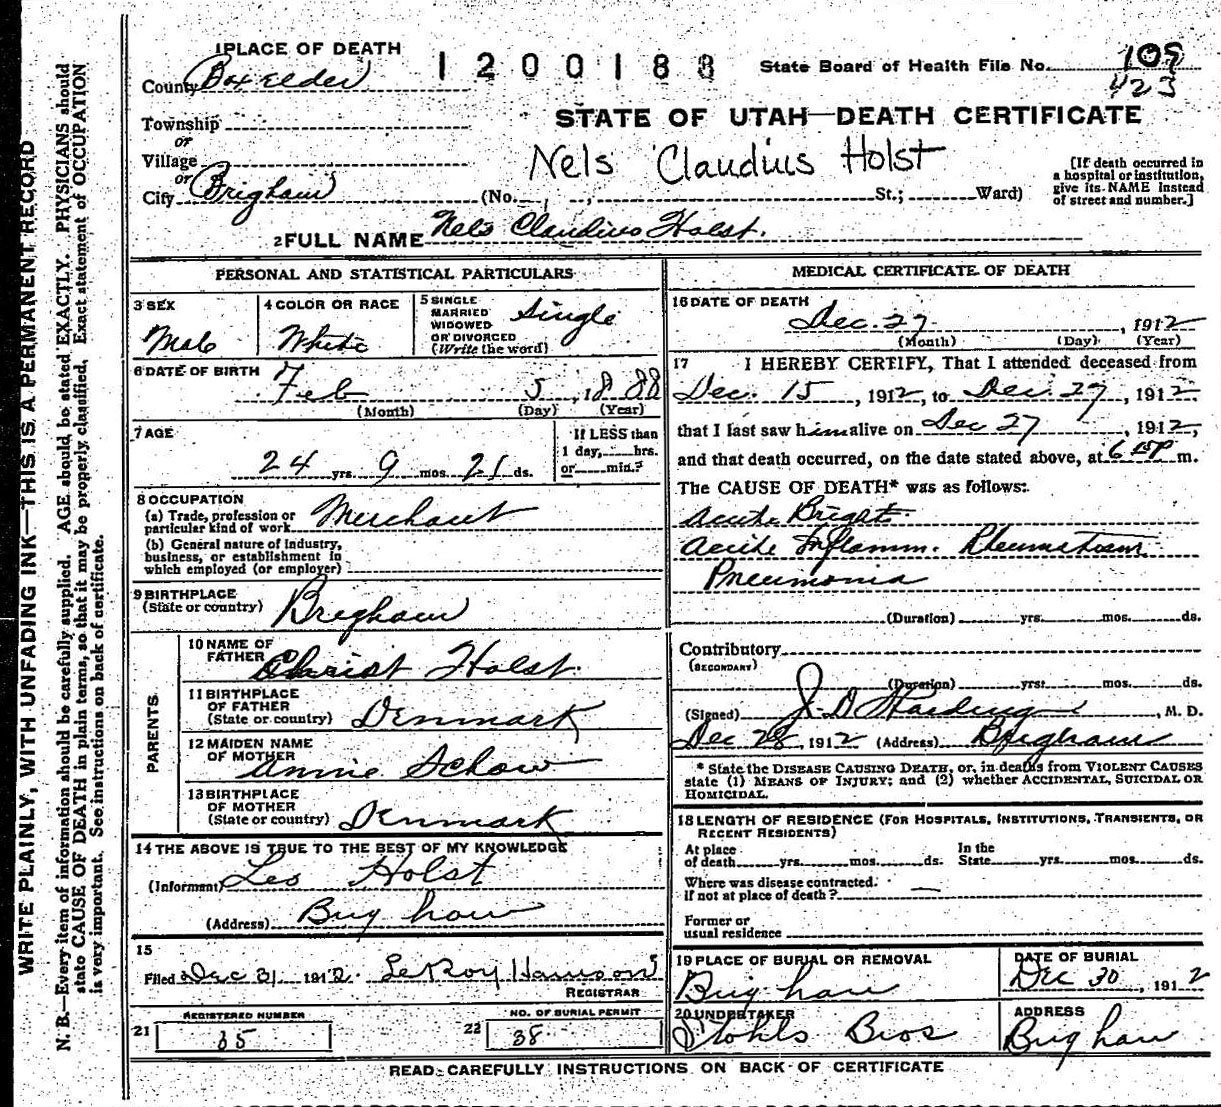 WRITE PLAINLY, WITH UNFADING INK—THIS IS A PERMANENT RECORD
N. B.—Every item of information should be carefully supplied. AGE should be stated EXACTLY. PHYSICIANS should
state CAUSE OF DEATH in plain terms, so that it may be properly classified. Exact statement of OCCUPATION
is very important. See instructions on back of certificate.
1 PLACE OF DEATH
County Box Elder
1200188
State Board of Health File No. 109
423
Township
or
Village
or
City Brigham
STATE OF UTAH—DEATH CERTIFICATE
Nels Claudius Holst
(No. , , St.; Ward)
[If death occurred in
a hospital or institution,
give its NAME instead
of street and number.]
2 FULL NAME Nels Claudius Holst.
PERSONAL AND STATISTICAL PARTICULARS
3 SEX
Male
4 COLOR OR RACE
White
5 SINGLE
MARRIED
WIDOWED
OR DIVORCED
(Write the word)
Single
6 DATE OF BIRTH
Feb 5, 1888
(Month) (Day) (Year)
7 AGE
24 yrs. 9 mos. 21 ds.
If LESS than
1 day, hrs.
or min.?
8 OCCUPATION
(a) Trade, profession or
particular kind of work Merchant
(b) General nature of industry,
business, or establishment in
which employed (or employer)
9 BIRTHPLACE
(State or country) Brigham
PARENTS
10 NAME OF
FATHER Christ Holst.
11 BIRTHPLACE
OF FATHER
(State or country) Denmark
12 MAIDEN NAME
OF MOTHER Annie Schow
13 BIRTHPLACE
OF MOTHER
(State or country) Denmark
14 THE ABOVE IS TRUE TO THE BEST OF MY KNOWLEDGE
(Informant) Leo Holst
(Address) Brigham
15
Filed Dec 31, 1912. LeRoy Hanson
REGISTRAR
REGISTERED NUMBER
21 35
NO. OF BURIAL PERMIT
22 38
MEDICAL CERTIFICATE OF DEATH
16 DATE OF DEATH
Dec. 27, 1912
(Month) (Day) (Year)
17 I HEREBY CERTIFY, That I attended deceased from
Dec. 15, 1912, to Dec. 27, 1912.
that I last saw him alive on Dec 27, 1912,
and that death occurred, on the date stated above, at 6 15P m.
The CAUSE OF DEATH* was as follows:
Acute Brights
Acute Inflamm. Rheumatism
Pneumonia
(Duration) yrs. mos. ds.
Contributory
(SECONDARY)
(Duration) yrs. mos. ds.
(Signed) J D Harding, M. D.
Dec 28, 1912 (Address) Brigham
* State the DISEASE CAUSING DEATH, or, in deaths from VIOLENT CAUSES
state (1) MEANS OF INJURY; and (2) whether ACCIDENTAL, SUICIDAL OR
HOMICIDAL.
18 LENGTH OF RESIDENCE (FOR HOSPITALS, INSTITUTIONS, TRANSIENTS, OR
RECENT RESIDENTS)
At place
of death yrs. mos. ds.
In the
State yrs. mos. ds.
Where was disease contracted.
If not at place of death?
Former or
usual residence
19 PLACE OF BURIAL OR REMOVAL
Brigham
DATE OF BURIAL
Dec 30, 1912
20 UNDERTAKER
Stohls Bros
ADDRESS
Brigham
READ CAREFULLY INSTRUCTIONS ON BACK OF CERTIFICATE